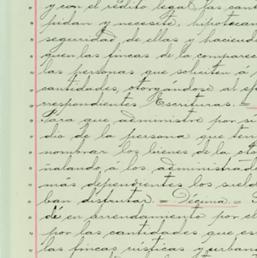 y con el rédito legal las cant
pidan y necesite, hipotecan
seguridad de ellas y haciendo
quen las fincas de la comparec
las personas que soliciten á
cantidades, otorgándose al efe
rrespondientes Escrituras. =
Para que administre por si
dio de la persona que ten
nombrar los bienes de la oto
ñalando á los administrado
mas dependientes los sueld
ban disfrutar. = Décima = 
dé en arrendamiento por el
por las cantidades que es
las fincas rústicas y urbana